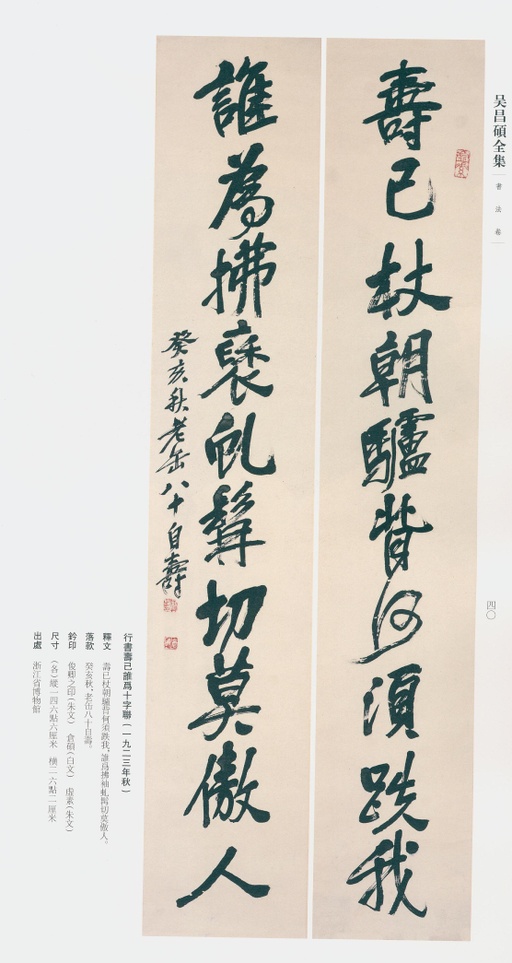 吴昌碩全集
書法卷
四〇
壽已杖朝驢背何須跌我
誰為拂褎虬髯切莫傲人
癸亥秋老缶八十自壽
行書壽已誰爲十字聯(一九二三年秋)
釋文 壽已杖朝驢背何須跌我,誰爲拂袖虬髯切莫傲人。
落款 癸亥秋,老缶八十自壽。
鈐印 俊卿之印(朱文) 倉碩(白文) 虛素(朱文)
尺寸 (各)縱一四六點六厘米 橫二六點二厘米
出處 浙江省博物館